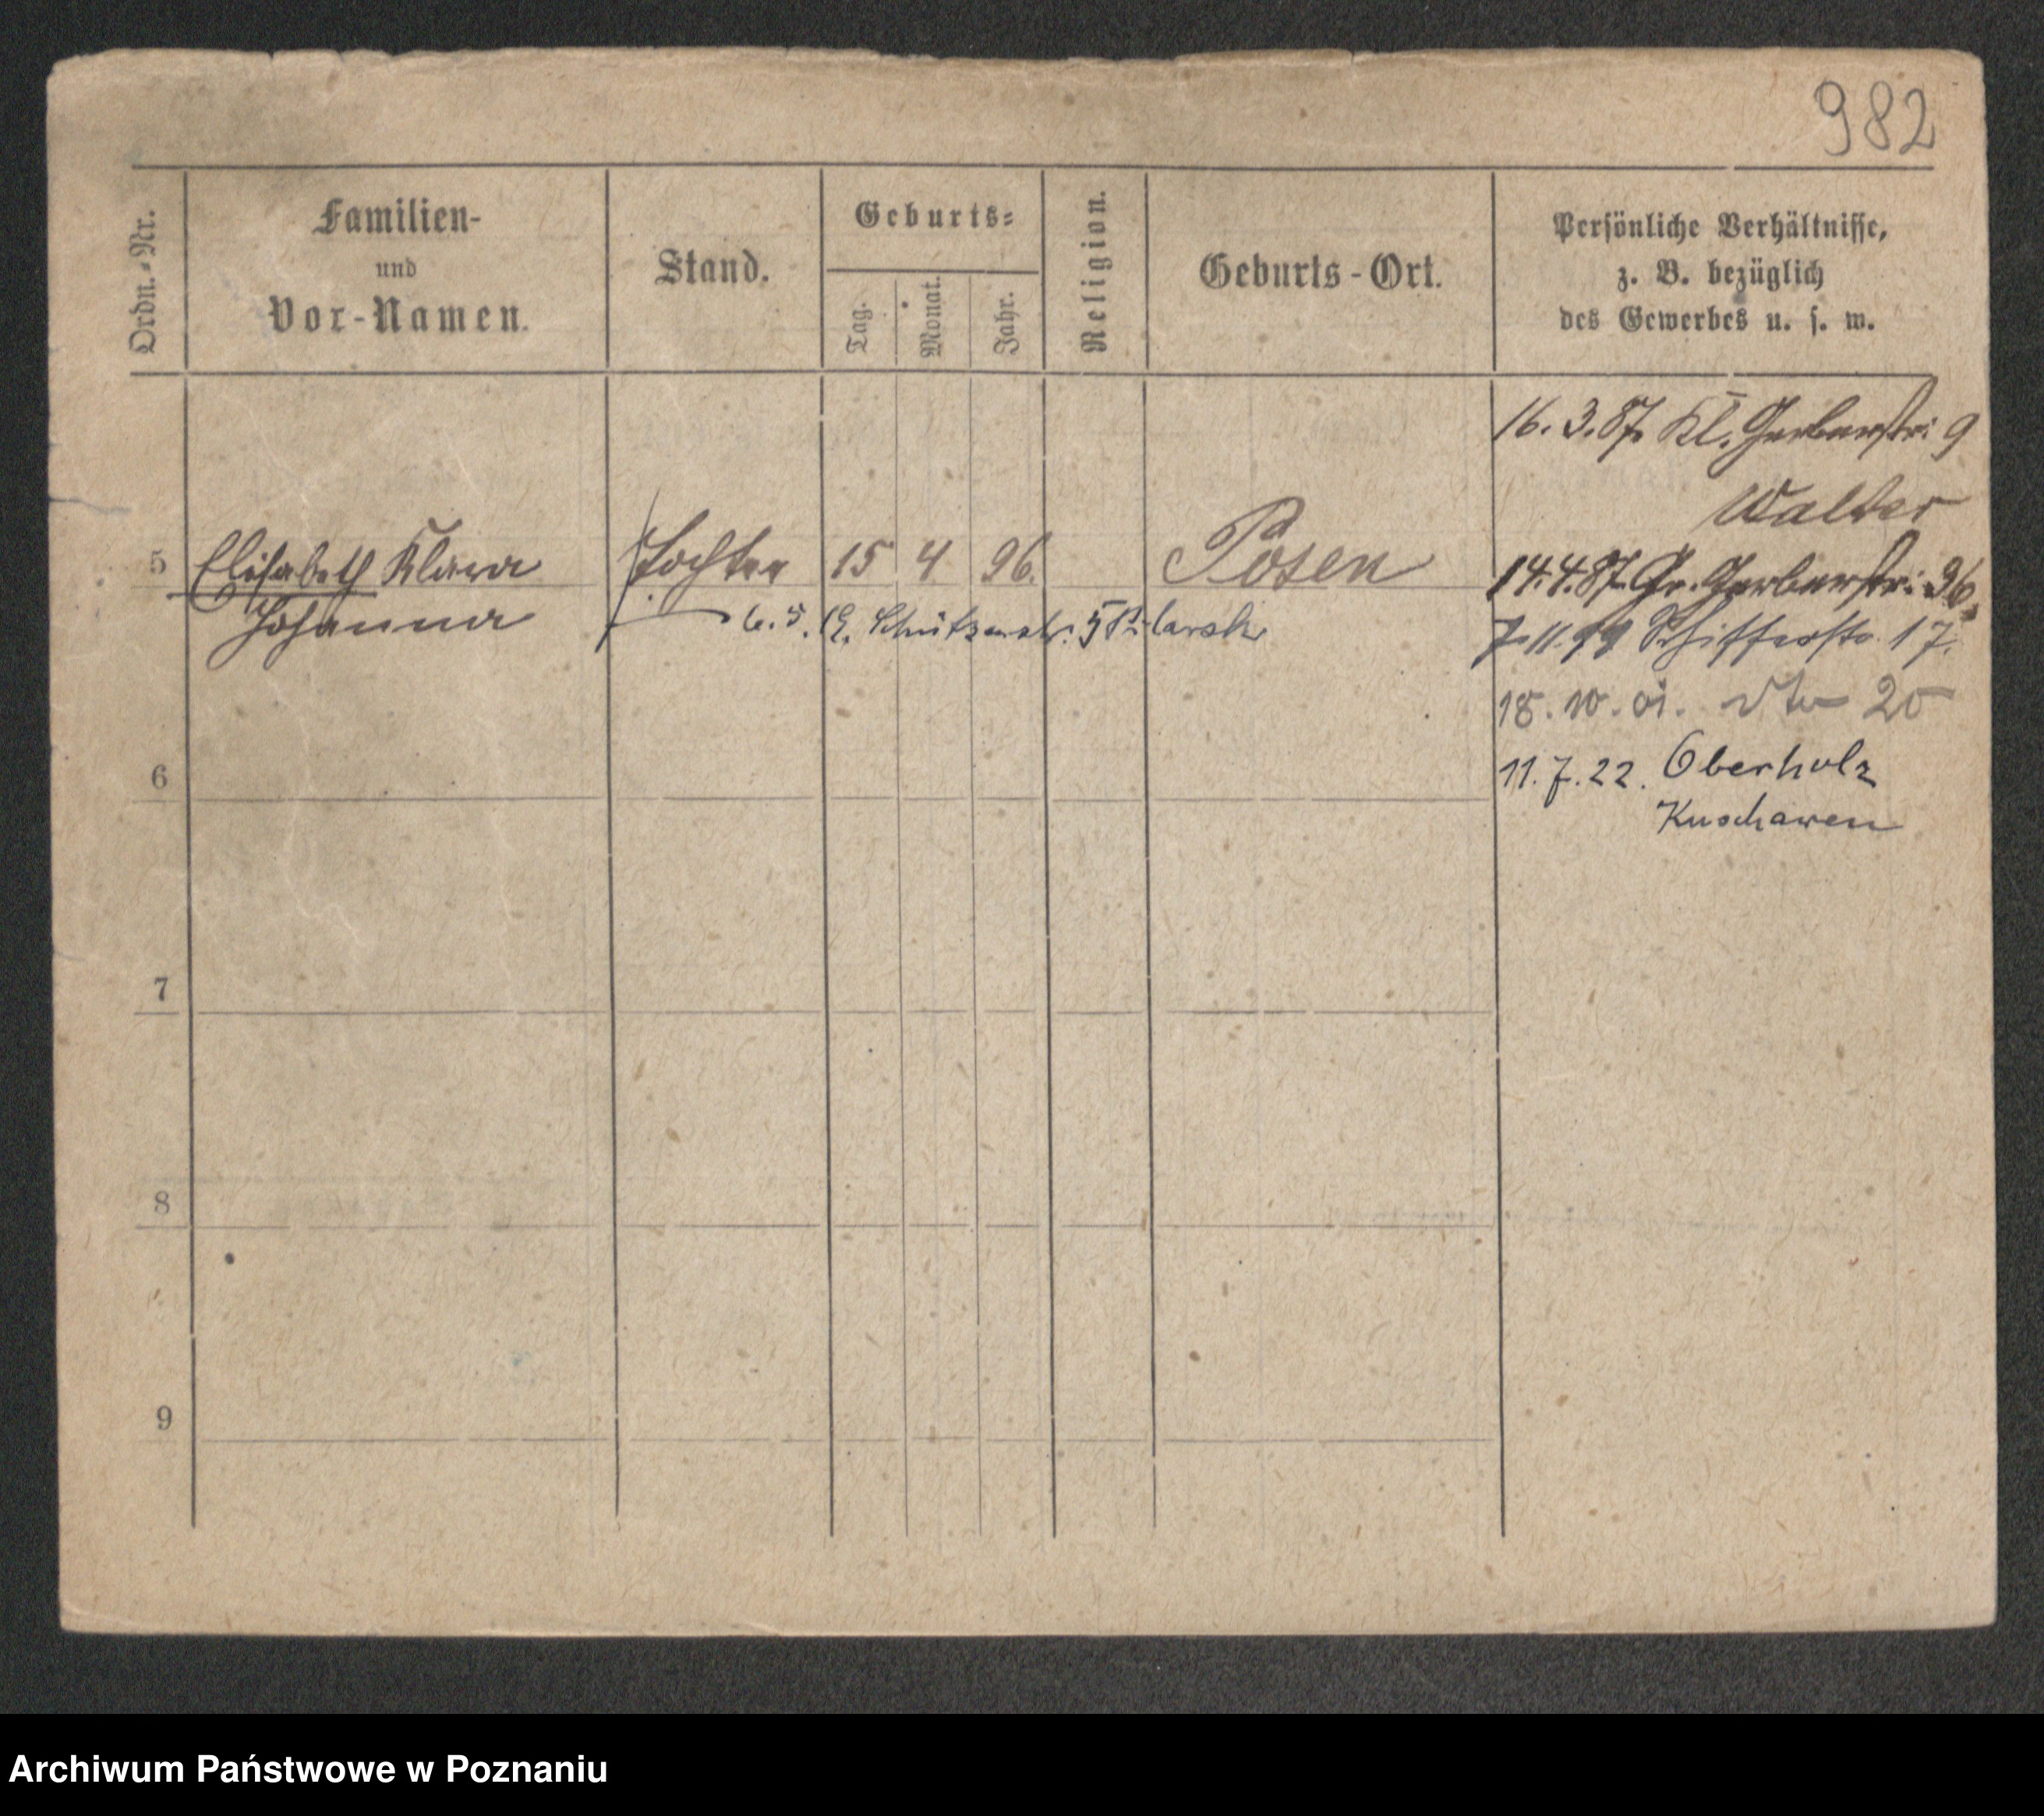 982
Ordn.-Nr.
Familien-
und
Vor-Namen.
Stand.
Geburts-
Tag.
Monat.
Jahr.
Religion.
Geburts-Ort.
Persönliche Verhältnisse,
z. B. bezüglich
des Gewerbes u. s. w.
16.3.87. Kl. Gerberstr: 9
Walter
5 Elisabeth Klara Tochter 15 4 96. Posen
14.4.87. Gr. Gerberstr: 36.
Johanna
6.5.19. Schützenstr. 5
7.11.99 Schifferstr. 17.
18.10.01. 20
6
11.7.22. Oberholz
Kuschawen
7
8
9
Archiwum Państwowe w Poznaniu